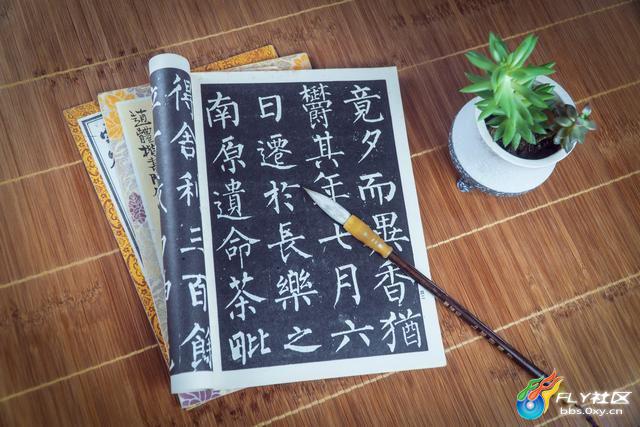 竟夕而異香猶
鬱其年七月六
日遷於長樂之
南原遺命茶毗
得舍利三百餘
FLY社区
bbs.0xy.cn